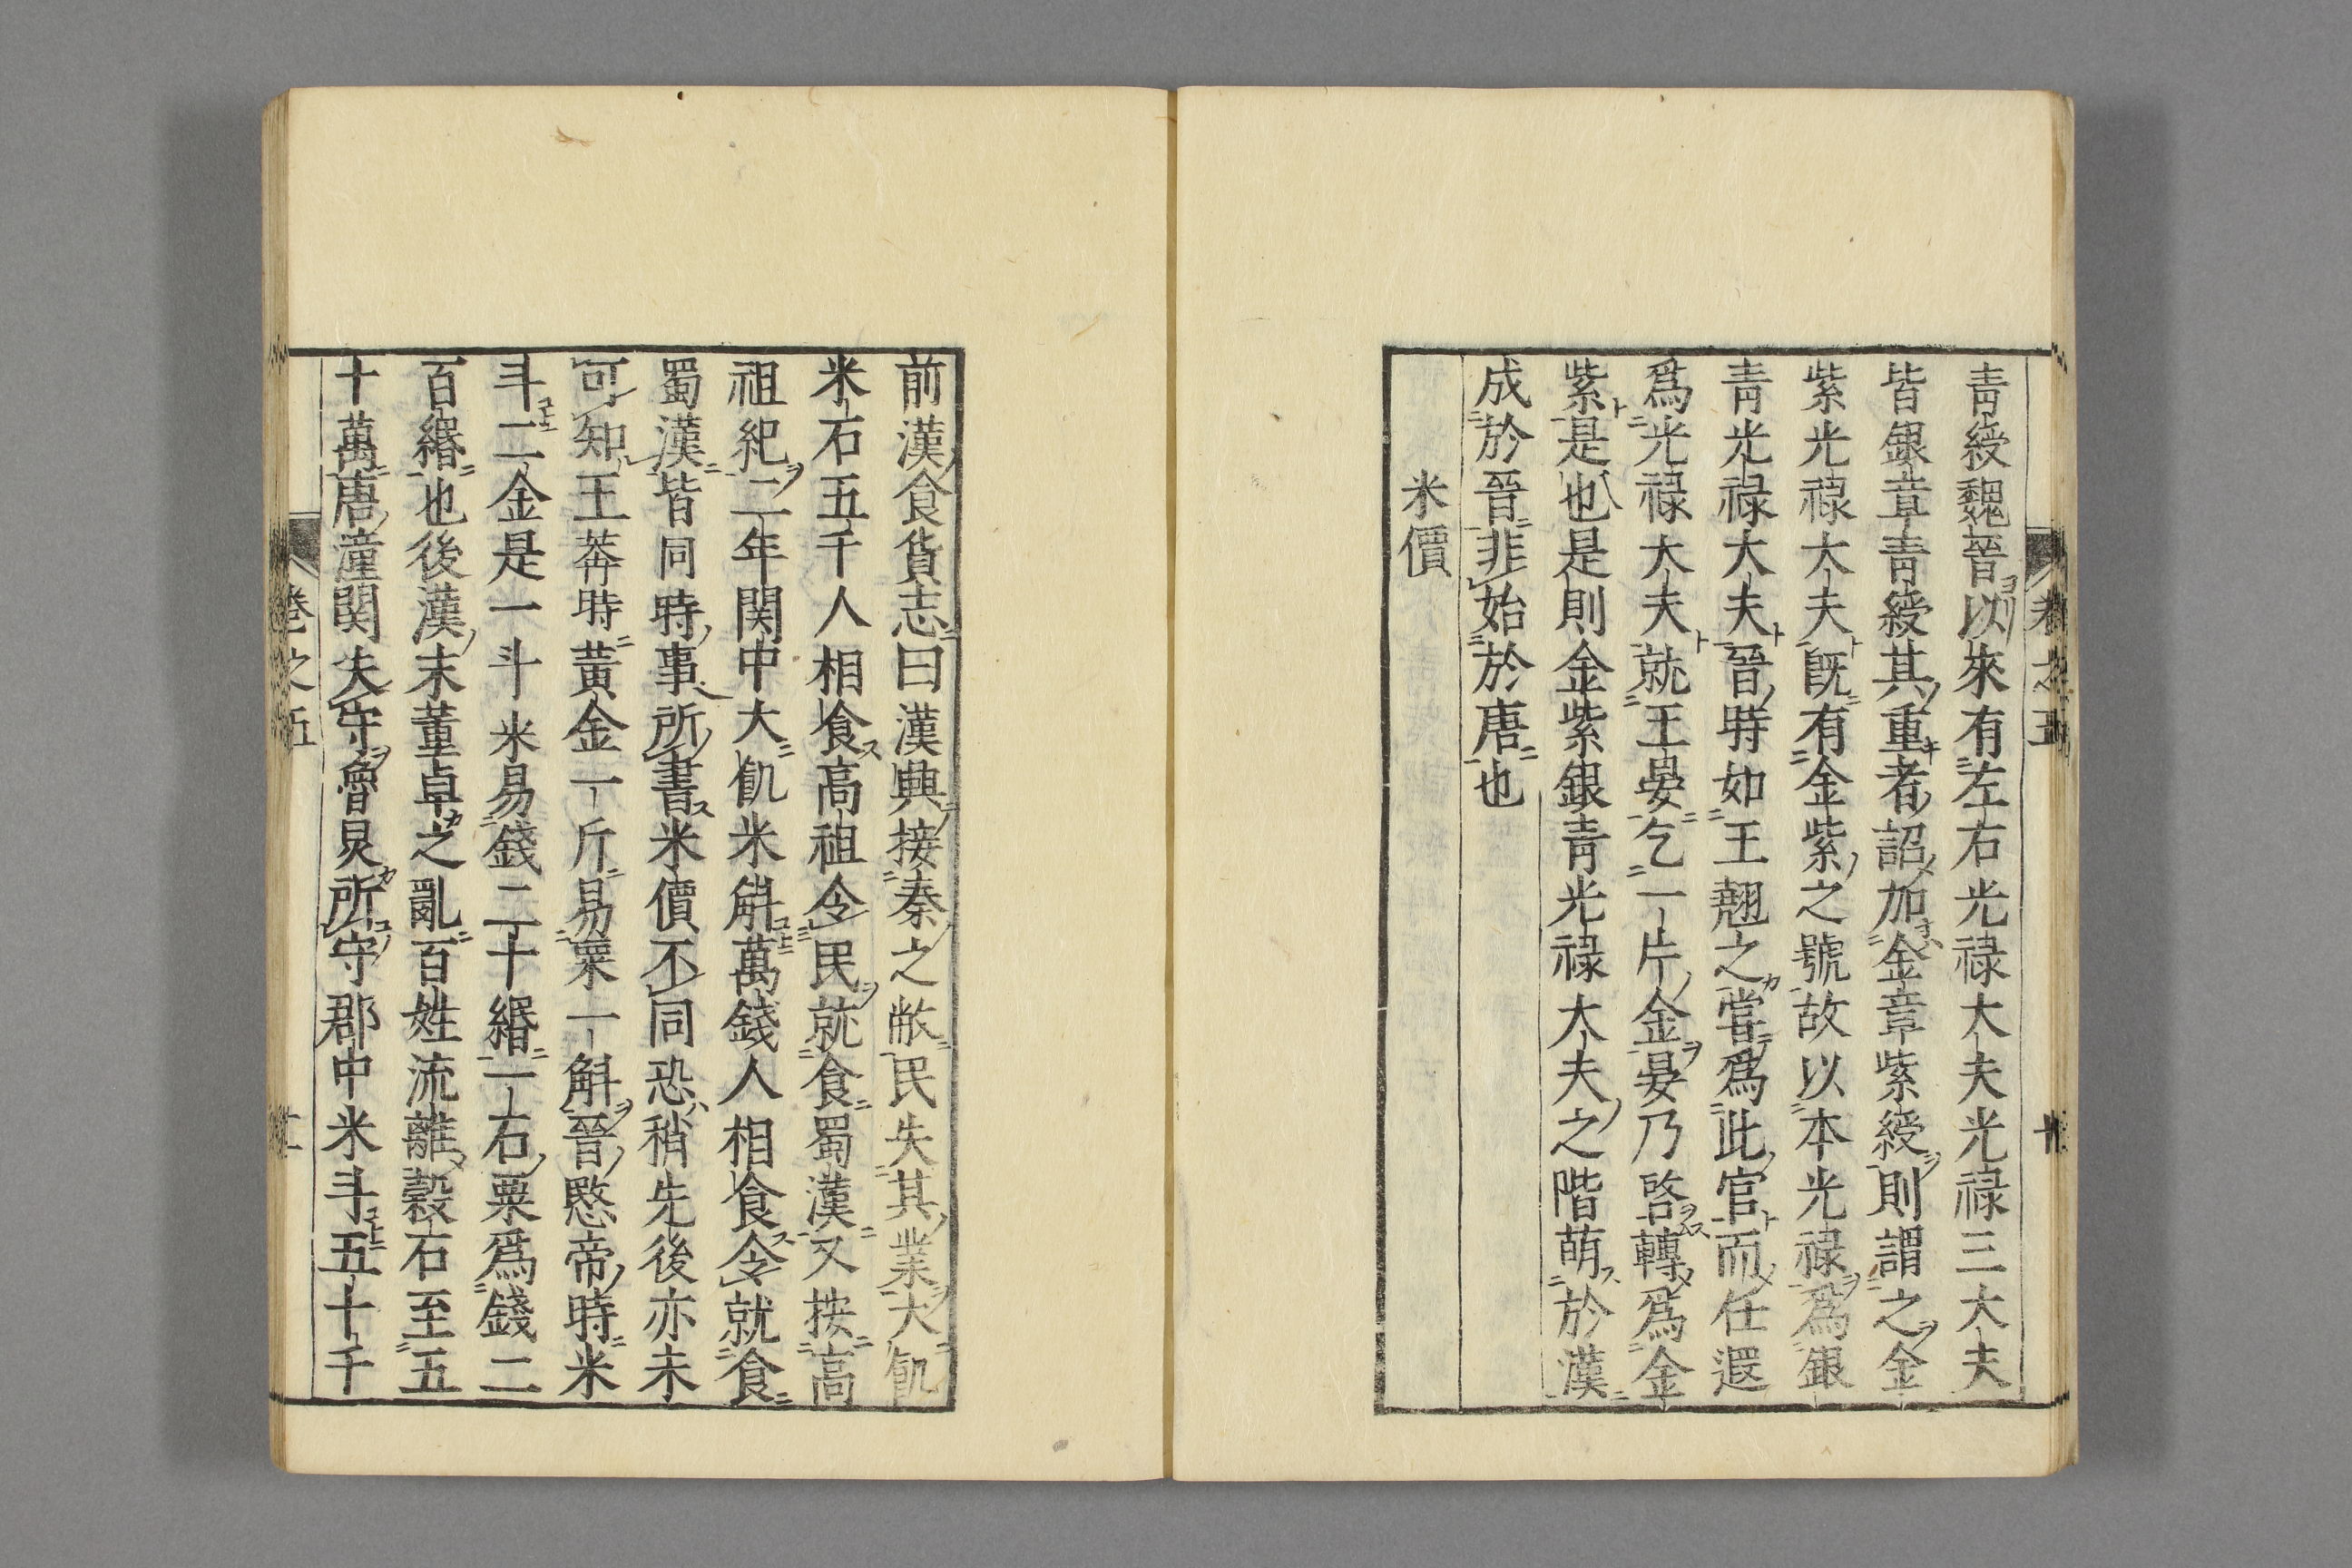 青綬魏晉以來有左右光禄大夫光禄三大夫
皆銀章青綬其重者詔加金章紫綬則謂之金
紫光禄大夫既有金紫之號故以本光禄爲銀
青光禄大夫晉時如王翹之嘗爲此官而任遐
爲光禄大夫就王晏乞一片金晏乃啓轉爲金
紫是也是則金紫銀青光禄大夫之階萌於漢
成於晉非始於唐也
米價
前漢食貨志曰漢興接秦之敝民失其業大飢
米石五千人相食高祖令民就食蜀漢又按高
祖紀二年関中大飢米斛萬錢人相食令就食
蜀漢皆同時事所書米價不同恐稍先後亦未
可知王莽時黃金一斤易粟一斛晉愍帝時米
斗二金是一斗米易錢二十緡一石粟爲錢二
百緡也後漢末董卓之亂百姓流離穀石至五
十萬唐潼関失守魯炅所守郡中米斗五十千
卷之五